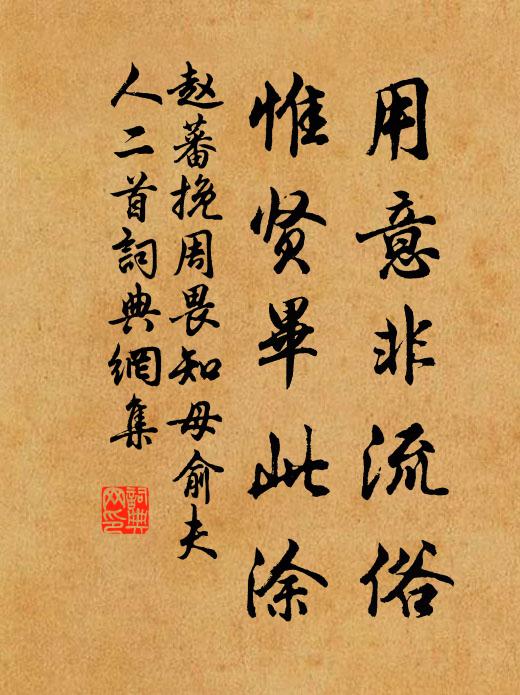 用意非流俗
惟贤畢此涂
赵蕃挽周畏知母俞夫
人二首詞典網集
詞典
网印